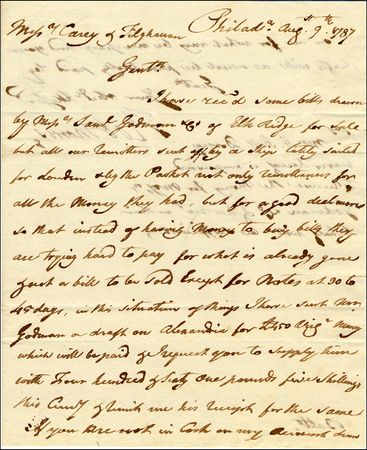 Philada. Augst. 9th. 1787
Messrs. Carey & Tilghman
Gentn.
I have rec'd some bills drawn
by Messrs. Saml. Godman & Co of Elk Ridge for Sale
but all our remitters sent off by a Ship lately sailed
for London & by the Packet not only remittances for
all the Money they had, but for a good deal more
so that instead of having Money to buy bills they
are trying hard to pay for what is already gone
& not a bill to be Sold Except for Notes at 30 to
45 days, in this situation of things I have sent Messrs.
Godman a draft on Alexandria for £450 Virga. Money
which will be paid & I request you to supply him
with Four hundred & Sixty One pounds five Shillings
this Curry. & remit me his receipt for the same
If you are not in Cash on my account draw